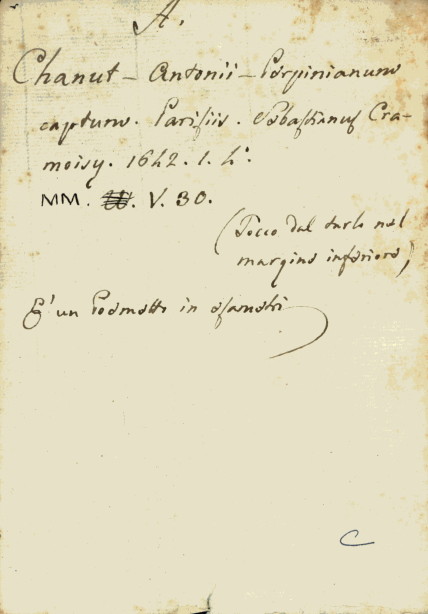 A.
Chanut - Antonii - Perpinianum
captum. Parisiis. Sebastianus Cra-
moisy. 1642. 1. 4°.
MM. V. 30.
(Tocco dal tarlo nel
margine inferiore)
E' un Poemetto in esametri
C